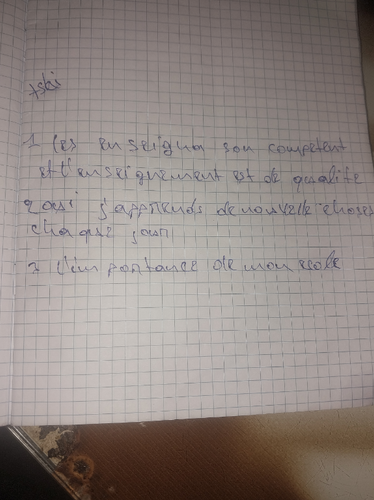 1 les enseigna son competent
et l'enseignement est de qualite
j'apprends de nouvelle choses
chaque jour
2 l'importance de mon ecole